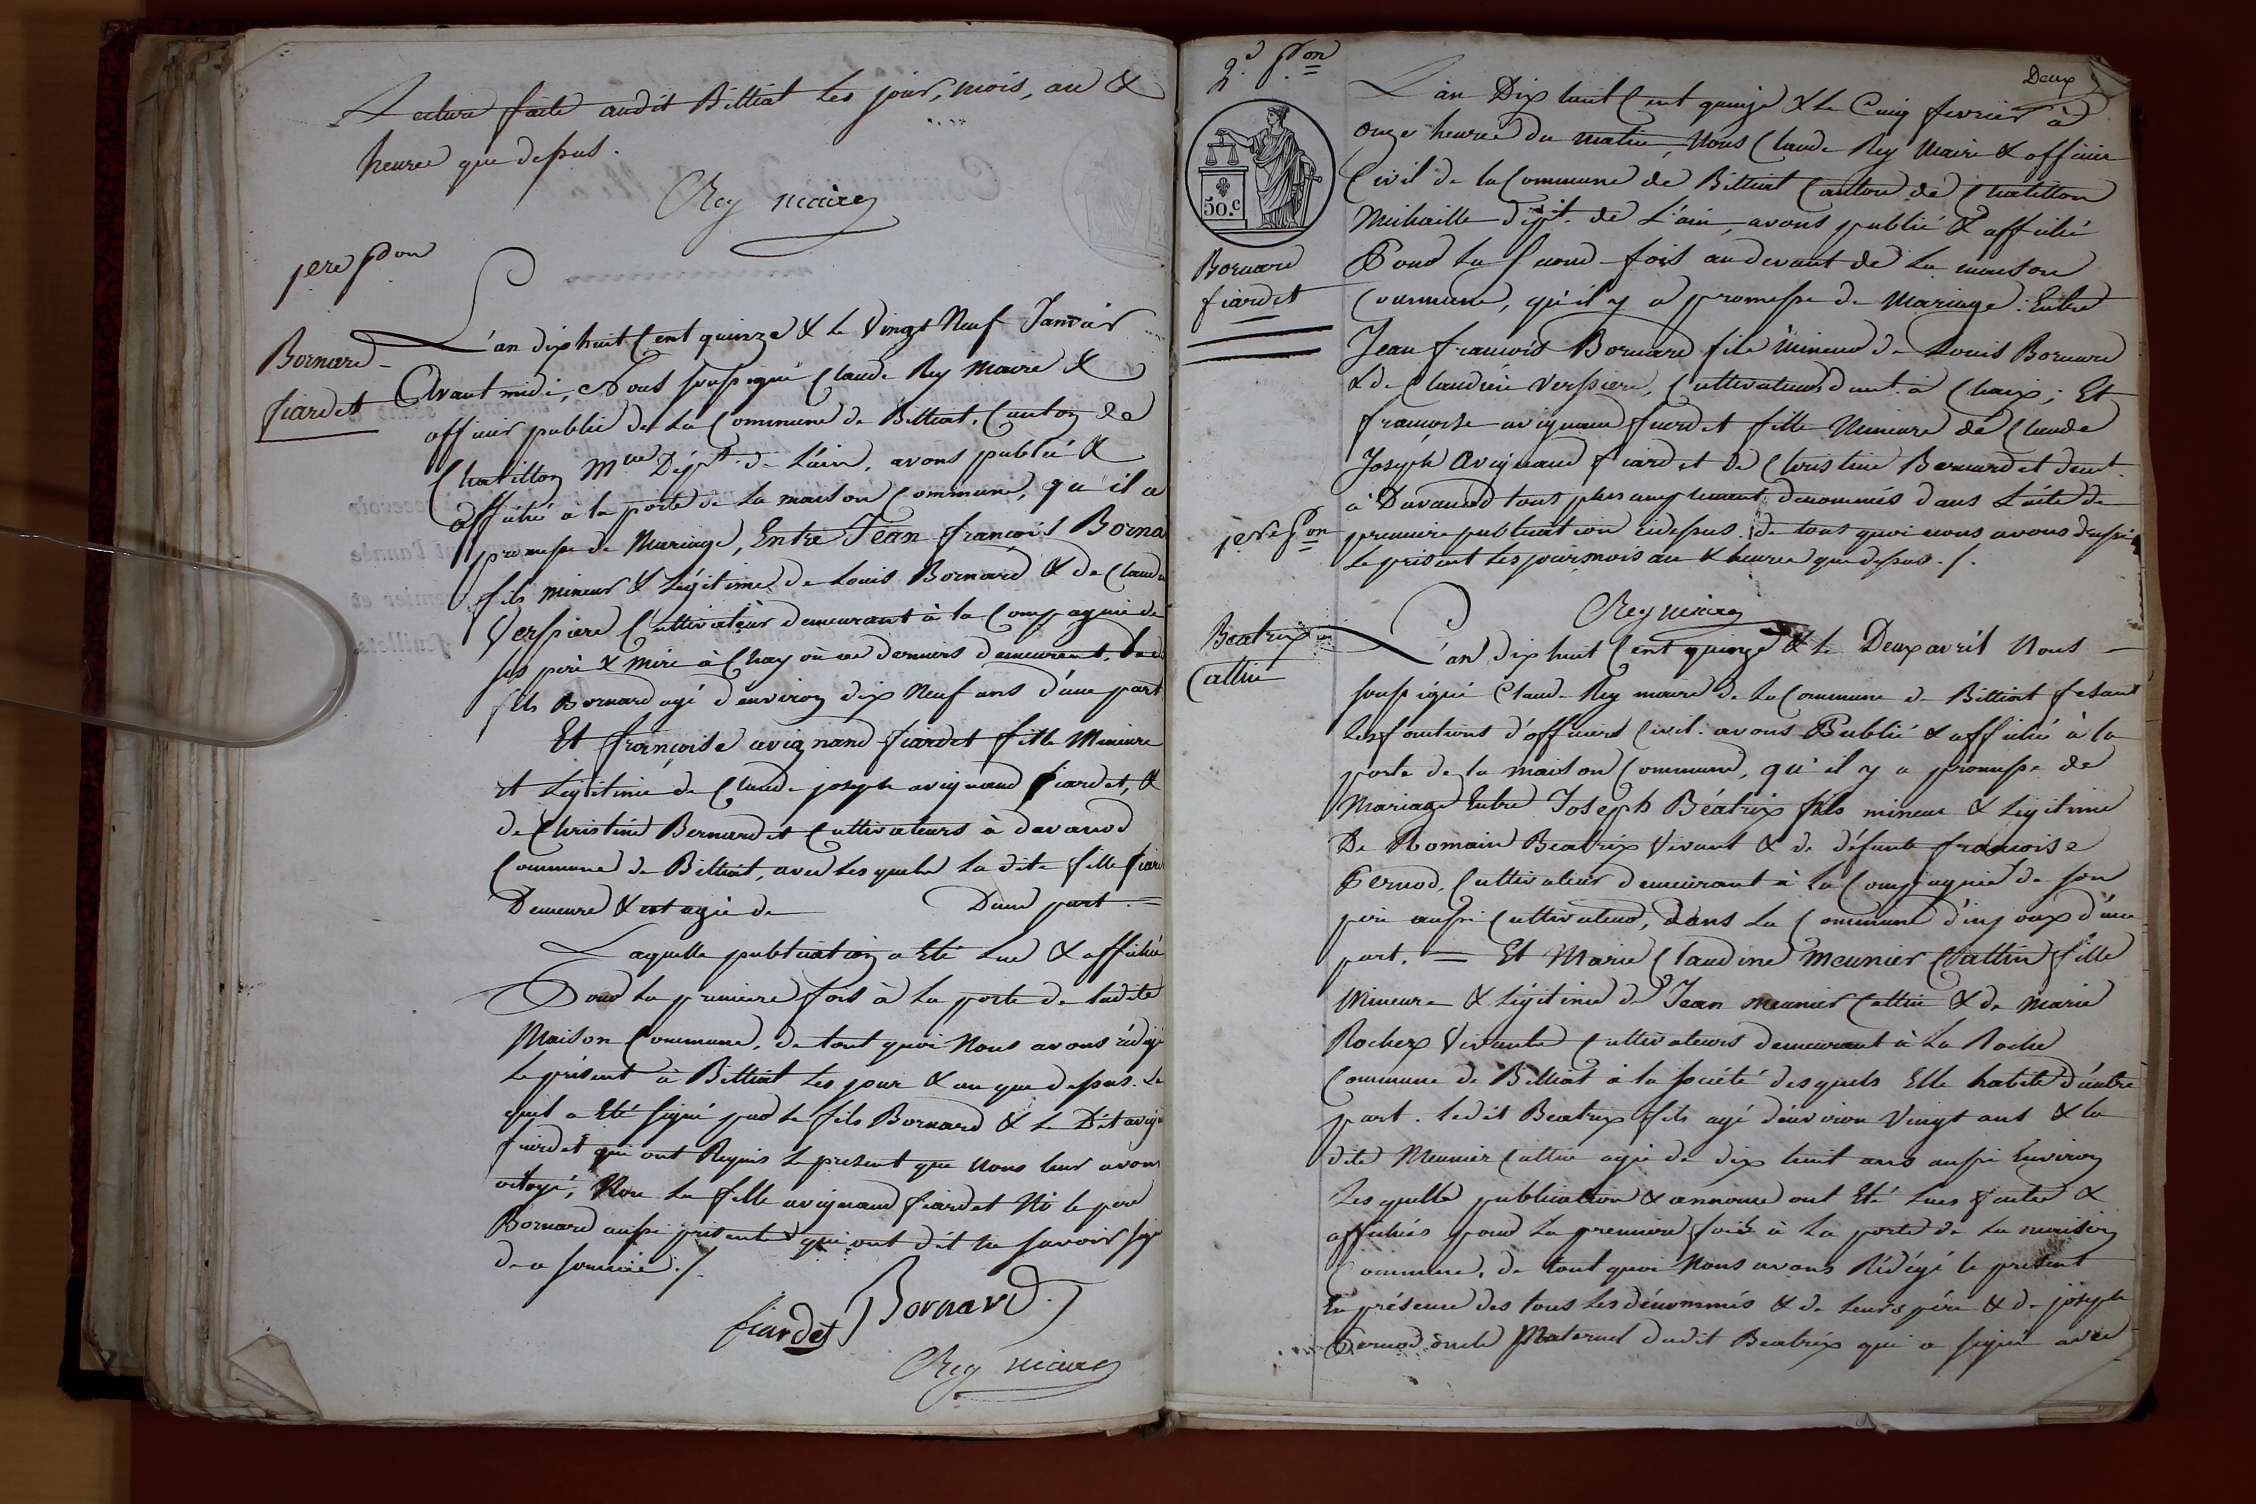 Lecture faite audit Billiat les jour, mois, an &
heures que dessus.
Rey maire
1ere pon
Bornard
fiardet
L'an dix huit Cent quinze & le Vingt Neuf Janvier
Avant midi, Nous soussigné Claude Rey Maire &
officier public de la Commune de Billiat, Canton de
Chatillon Mlle Dépt. de L'ain, avons publié &
affiché à la porte de la maison Commune, qu'il a
promesse de Mariage, Entre Jean françois Borna
fils mineur & Légitime de Louis Bornard & de Claudi
Verssiere Cultivateur demeurant à la Compagnie de
ses père & Mère à Chay où ces derniers demeurent, le d
fils Bornard agé d'environ dix Neuf ans d'une part
Et françoise avignand fiardet fille Mineure
et Légitime de Claude joseph avignand fiardet, &
de Christine Bernardet Cultivateurs à davanod
Commune de Billiat, avec lesquels la dite fille fiard
Demeure & est agée de D'une part. =
Laquelle publication a Eté Lue & affichée
Pour la premiere fois à la porte de ladite
Maison Commune, de tout quoi Nous avons rédigé
Le présent à Billiat les jour & an que dessus. Le
quel a Eté signé par le fils Bornard & le Dit avign
fiardet qui ont Requis le present que nous leur avons
octoyé, Non la fille avignand fiardet Ni le père
Bornard aussi présents qui ont dit ne savoir sign
de ce sommé ./.
fiardet Bornard
Rey maire
Deux
2.d pon
50.c
Bornard
fiardet
L'an Dix huit Cent quinze & le Cinq fevrier à
onze heures du matin, Nous Claude Rey Maire & officier
Civil de la Commune de Billiat Canton de Chatillon
Michaille dépt. de L'ain, avons publié & affiché
Pour la seconde fois au devant de la maison
Commune, qu'il y a promesse de Mariage : Entre
Jean francois Bornard fils Mineur de Louis Bornard
& de Claudine Verssiere, Cultivateurs demt. à Chaix; Et
francoise avignand fiardet fille Mineure de Claude
Joseph Avignand fiardet & de Christine Bernardet demt.
à Davanod tous plus amplement denommés dans L'acte de
premiere publication cidessus. de tout quoi nous avons dressé
Le présent les jour mois an & heures que dessus ./.
Rey maire
1ere pon
Beatrix
Cattin
L'an dix huit Cent quinze & le Deux avril Nous
soussigné Claude Rey maire de la Commune de Billiat fesant
les fonctions d'officier Civil. avons Publié & affiché à la
porte de la maison Commune, qu'il y a promesse de
Mariage Entre Joseph Béatrix fils mineur & Légitime
De Romain Beatrix Vivant & de défunte francoise
Pernod, Cultivateur demeurant à la Compagnie de son
père aussi Cultivateur, dans la Commune d'injoux d'une
part. = Et Marie Claudine Meunier Cattin fille
Mineure & Légitime de Jean meunier Cattin & de Marie
Rochex Vivants Cultivateurs demeurant à La Roche
Commune de Billiat à la société desquels Elle habite d'autre
part. ledit Beatrix fils agé d'environ Vingt ans & la
dite Meunier Cattin agée de dix huit ans aussi Environ
Lesquelles publication & annonce ont Eté lues faites &
affichés pour la premiere fois à la porte de la maison
Commune, de tout quoi Nous avons Rédigé le présent
En présence des tous les dénommés & de leurs père & de joseph
Pernod oncle Maternel dudit Beatrix qui a signé avec